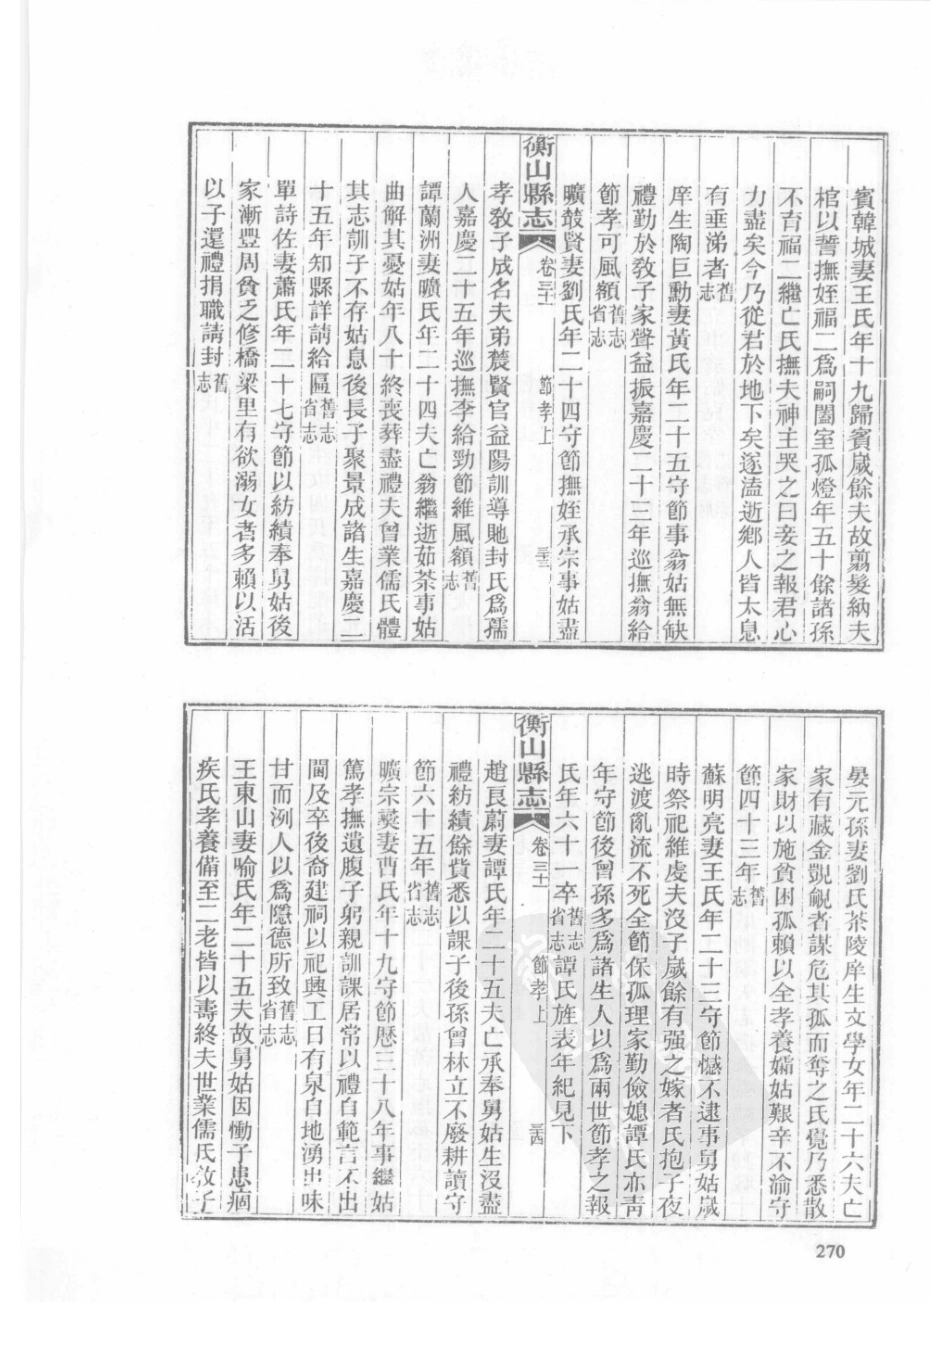 賓韓城妻王氏年十九歸賓歲餘夫故翦髮納夫
棺以誓撫姪福二爲嗣闔室孤燈年五十餘諸孫
不育福二繼亡氏撫夫神主哭之曰妾之報君心
力盡矣今乃從君於地下矣遂溘逝鄉人皆太息
有垂涕者舊志
庠生陶巨勳妻黃氏年二十五守節事翁姑無缺
禮勤於敎子家聲益振嘉慶二十三年巡撫翁給
節孝可風額舊志省志
曠敍賢妻劉氏年二十四守節撫姪承宗事姑盡
衡山縣志 卷三十 節孝上 三三
孝敎子成名夫弟農賢官益陽訓導貤封氏爲孺
人嘉慶二十五年巡撫李給勁節維風額舊志
譚蘭洲妻曠氏年二十四夫亡翁繼逝茹荼事姑
曲解其憂姑年八十終喪葬盡禮夫曾業儒氏體
其志訓子不存姑息後長子聚景成諸生嘉慶二
十五年知縣詳請給匾舊志省志
單詩佐妻蕭氏年二十七守節以紡績奉舅姑後
家漸豐周貧之修橋梁里有欲溺女者多賴以活
以子遵禮捐職請封舊志
晏元孫妻劉氏茶陵庠生文學女年二十六夫亡
家有藏金覬覦者謀危其孤而奪之氏覺乃悉散
家財以施貧困孤賴以全孝養孀姑艱辛不渝守
節四十三年舊志
蘇明亮妻王氏年二十三守節憾不逮事舅姑歲
時祭祀維虔夫沒子歲餘有强之嫁者氏抱子夜
逃渡亂流不死全節保孤理家勤儉媳譚氏亦靑
年守節後曾孫多爲諸生人以爲兩世節孝之報
氏年六十一卒舊志省志譚氏旌表年紀見下
衡山縣志 卷三十 節孝上 三四
趙良蔚妻譚氏年二十五夫亡承奉舅姑生沒盡
禮紡績餘貲悉以課子後孫曾林立不廢耕讀守
節六十五年舊志省志
曠宗燮妻曹氏年十九守節歷三十八年事繼姑
篤孝撫遺腹子躬親訓課居常以禮自範言不出
閫及卒後裔建祠以祀興工日有泉自地湧出味
甘而洌人以爲隱德所致舊志省志
王東山妻喻氏年二十五夫故舅姑因慟子患痼
疾氏孝養備至二老皆以壽終夫世業儒氏敎子
270